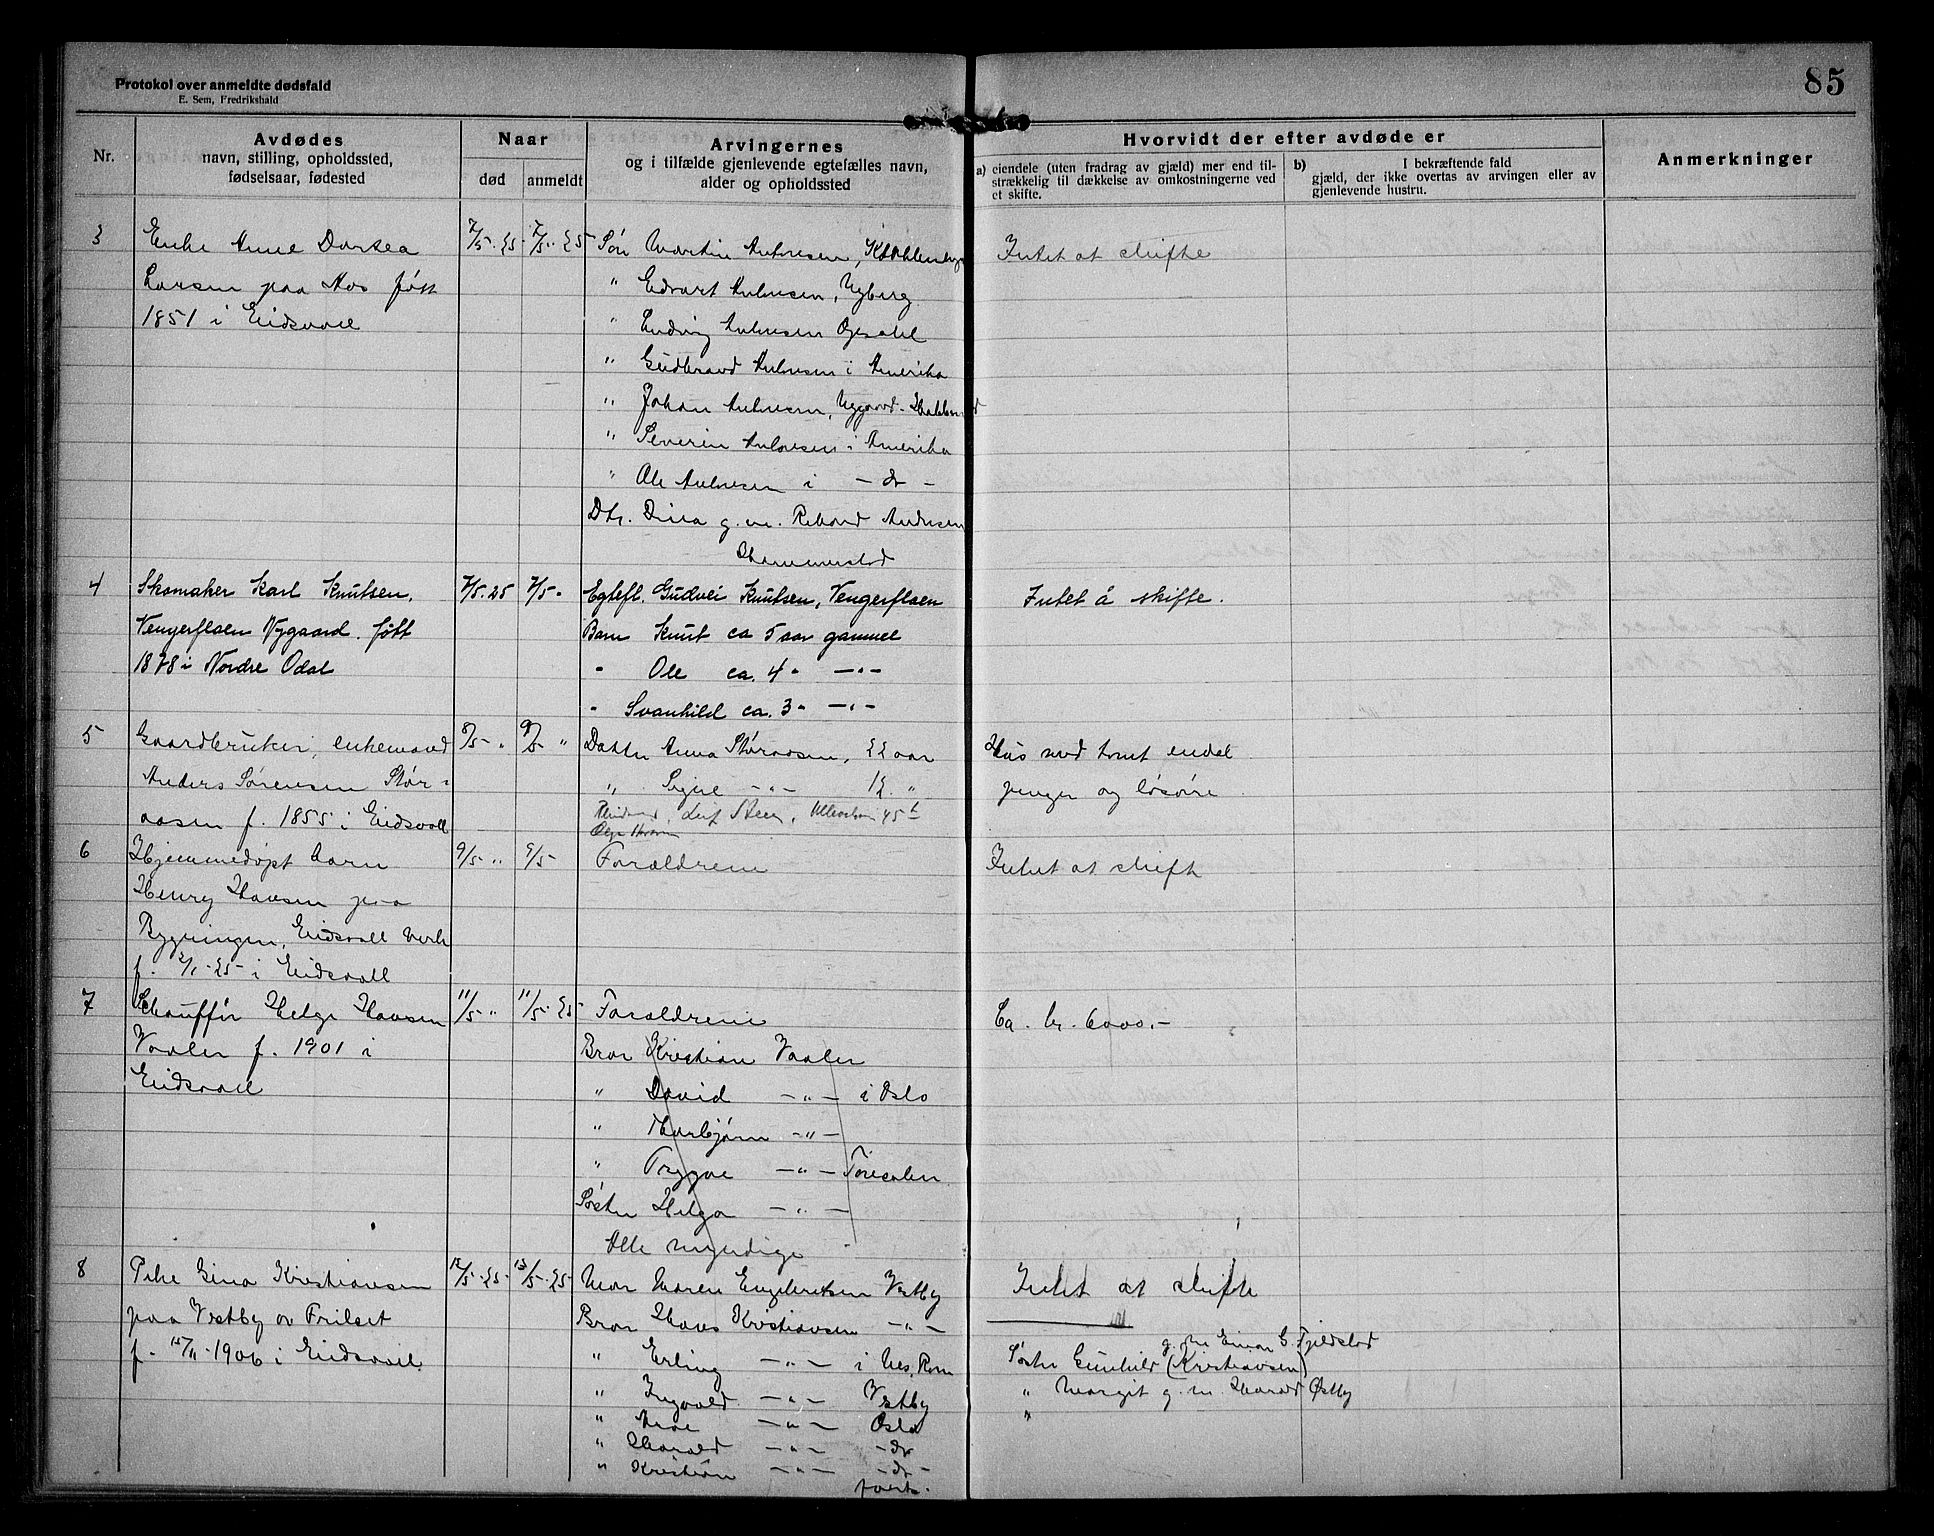 85
Protokol over anmeldte dødsfald
E. Sem, Fredrikshald
Nr.
Avdødes
navn, stilling, opholdssted,
fødselsaar, fødested
Naar
død
anmeldt
Arvingernes
og i tilfælde gjenlevende egtefælles navn,
alder og opholdssted
Hvorvidt der efter avdøde er
a) eiendele (uten fradrag av gjæld) mer end til-
strækkelig til dækkelse av omkostningerne ved
et skifte.
b) I bekræftende fald
gjæld, der ikke overtas av arvingen eller av
gjenlevende hustru.
Anmerkninger
3
Enke Anne Dortea
Larsen paa Mos født
1851 i Eidsvoll
7/5-25- 7/5-25-
Søn Martin Antonsen,
" Edvart Antonsen, Nyberg
" Ludvig Antonsen Opsahl
" Gudbrand Antonsen i Amerika
" Johan Antonsen, Nygaard
" Severin Antonsen i Amerika
" Ole Antonsen i - do -
Dtr. Dina g. m. Andersen
Intet at skifte
4
Skomaker Karl Knutsen,
Vengerflaen Nygaard. født
1878 i Nordre Odal
7/5-25 7/5-"
Egtefl. Gudvei Knutsen, Vengerflaen
Barn Knut ca 5 aar gammel
" Ole ca. 4 " -"-
" Svanhild ca. 3 " -"-
Intet å skifte.
5
Gaardbruker, enkemand
Anders Sørensen Stør-
aasen f. 1855 i Eidsvoll
8/5- " 9/5- "
Datter Anna Støraasen, 22 aar
" Signe -"- 12 "
Leif Steen,
Hus med tomt endel
penger og løsøre
6
Hjemmedøpt barn
Henry Hansen paa
Bygningen, Eidsvoll Verk
f. 2/1-25- i Eidsvoll
9/5- " 9/5-
Forældrene
Intet at skifte
7
Chauffør Helge Hansen
Vaaler f. 1901 i
Eidsvoll
11/5- " 11/5-25-
Forældrene
Bror Kristian Vaaler
" David -"- i Oslo
" Thorbjørn -"-
" Trygve -"-
Søster Helga -"-
Alle myndige
Ca. kr. 6000.-
8
Pike Gina Kristiansen
paa Vestby av Frilset
f. 15/11-1906 i Eidsvoll
12/5-25- 13/5-25-
Mor Maren Engebretsen Vestby
Bror Hans Kristiansen -"-
" Erling -"- i Nes, Rom
" Ingvald -"- Vestby
" Arne -"- Oslo
" Harald -"- -do-
" Kristian -"- -do-
forts.
Intet at skifte
g. m. Einar G. Fjeldstad
Søster Gunhild (Kristiansen)
" Margit g. m. Harald Østby
"